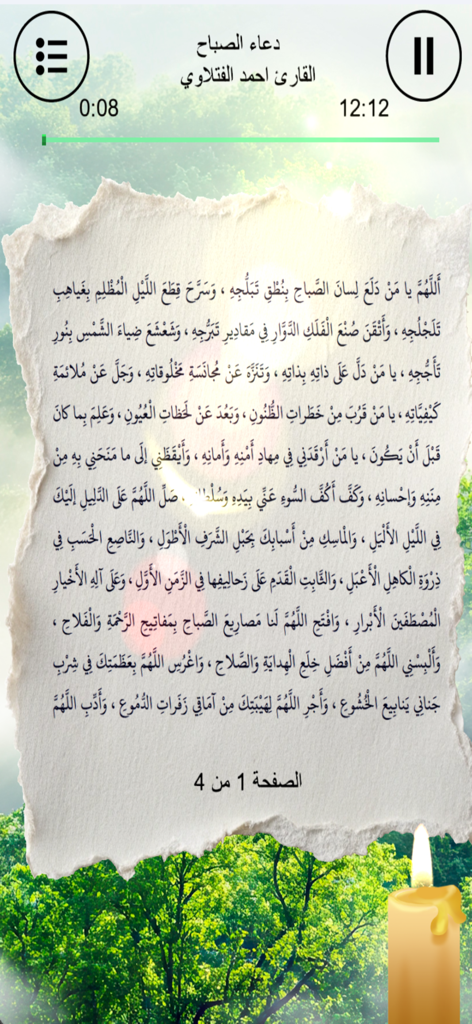 دعاء الصباح
القارئ احمد الفتلاوي
0:08
12:12
أَللّهُمَّ يا مَنْ دَلَعَ لِسانَ الصَّباحِ بِنُطْقِ تَبَلُّجِهِ ، وَسَرَّحَ قِطَعَ اللَّيْلِ الْمُظْلِمِ بِغَياهِبِ
تَلَجْلُجِهِ ، وَأَتْقَنَ صُنْعَ الْفَلَكِ الدَّوّارِ فِي مَقادِيرِ تَبَرُّجِهِ ، وَشَعْشَعَ ضِياءَ الشَّمْسِ بِنُورِ
تَأَجُّجِهِ ، يا مَنْ دَلَّ عَلَى ذاتِهِ بِذاتِهِ ، وَتَنَزَّهَ عَنْ مُجانَسَةِ مَخْلُوقاتِهِ ، وَجَلَّ عَنْ مُلائَمَةِ
كَيْفِيّاتِهِ ، يا مَنْ قَرُبَ مِنْ خَطَراتِ الظُّنُونِ ، وَبَعُدَ عَنْ لَحَظاتِ الْعُيُونِ ، وَعَلِمَ بِما كانَ
قَبْلَ أَنْ يَكُونَ ، يا مَنْ أَرْقَدَنِي فِي مِهادِ أَمْنِهِ وَأَمانِهِ ، وَأَيْقَظَنِي إِلى ما مَنَحَنِي بِهِ مِنْ
مِنَنِهِ وَإِحْسانِهِ ، وَكَفَّ أَكُفَّ السُّوءِ عَنِّي بِيَدِهِ وَسُلْطانِهِ صَلِّ اللّهُمَّ عَلَى الدَّلِيلِ إِلَيْكَ
فِي اللَّيْلِ الْأَلْيَلِ ، وَالْماسِكِ مِنْ أَسْبابِكَ بِحَبْلِ الشَّرَفِ الْأَطْوَلِ ، وَالنّاصِعِ الْحَسَبِ فِي
ذِرْوَةِ الْكاهِلِ الْأَعْبَلِ ، وَالثّابِتِ الْقَدَمِ عَلَى زَحالِيفِها فِي الزَّمَنِ الْأَوَّلِ ، وَعَلَى آلِهِ الْأَخْيارِ
الْمُصْطَفَيْنَ الْأَبْرارِ ، وَافْتَحِ اللّهُمَّ لَنا مَصارِيعَ الصَّباحِ بِمَفاتِيحِ الرَّحْمَةِ وَالْفَلاحِ ،
وَأَلْبِسْنِي اللّهُمَّ مِنْ أَفْضَلِ خِلَعِ الْهِدايَةِ وَالصَّلاحِ ، وَاغْرُسِ اللّهُمَّ بِعَظَمَتِكَ فِي شِرْبِ
جَنانِي يَنابِيعَ الْخُشُوعِ ، وَأَجْرِ اللّهُمَّ لِهَيْبَتِكَ مِنْ آماقِي زَفَراتِ الدُّمُوعِ ، وَأَدِّبِ اللّهُمَّ
الصفحة 1 من 4